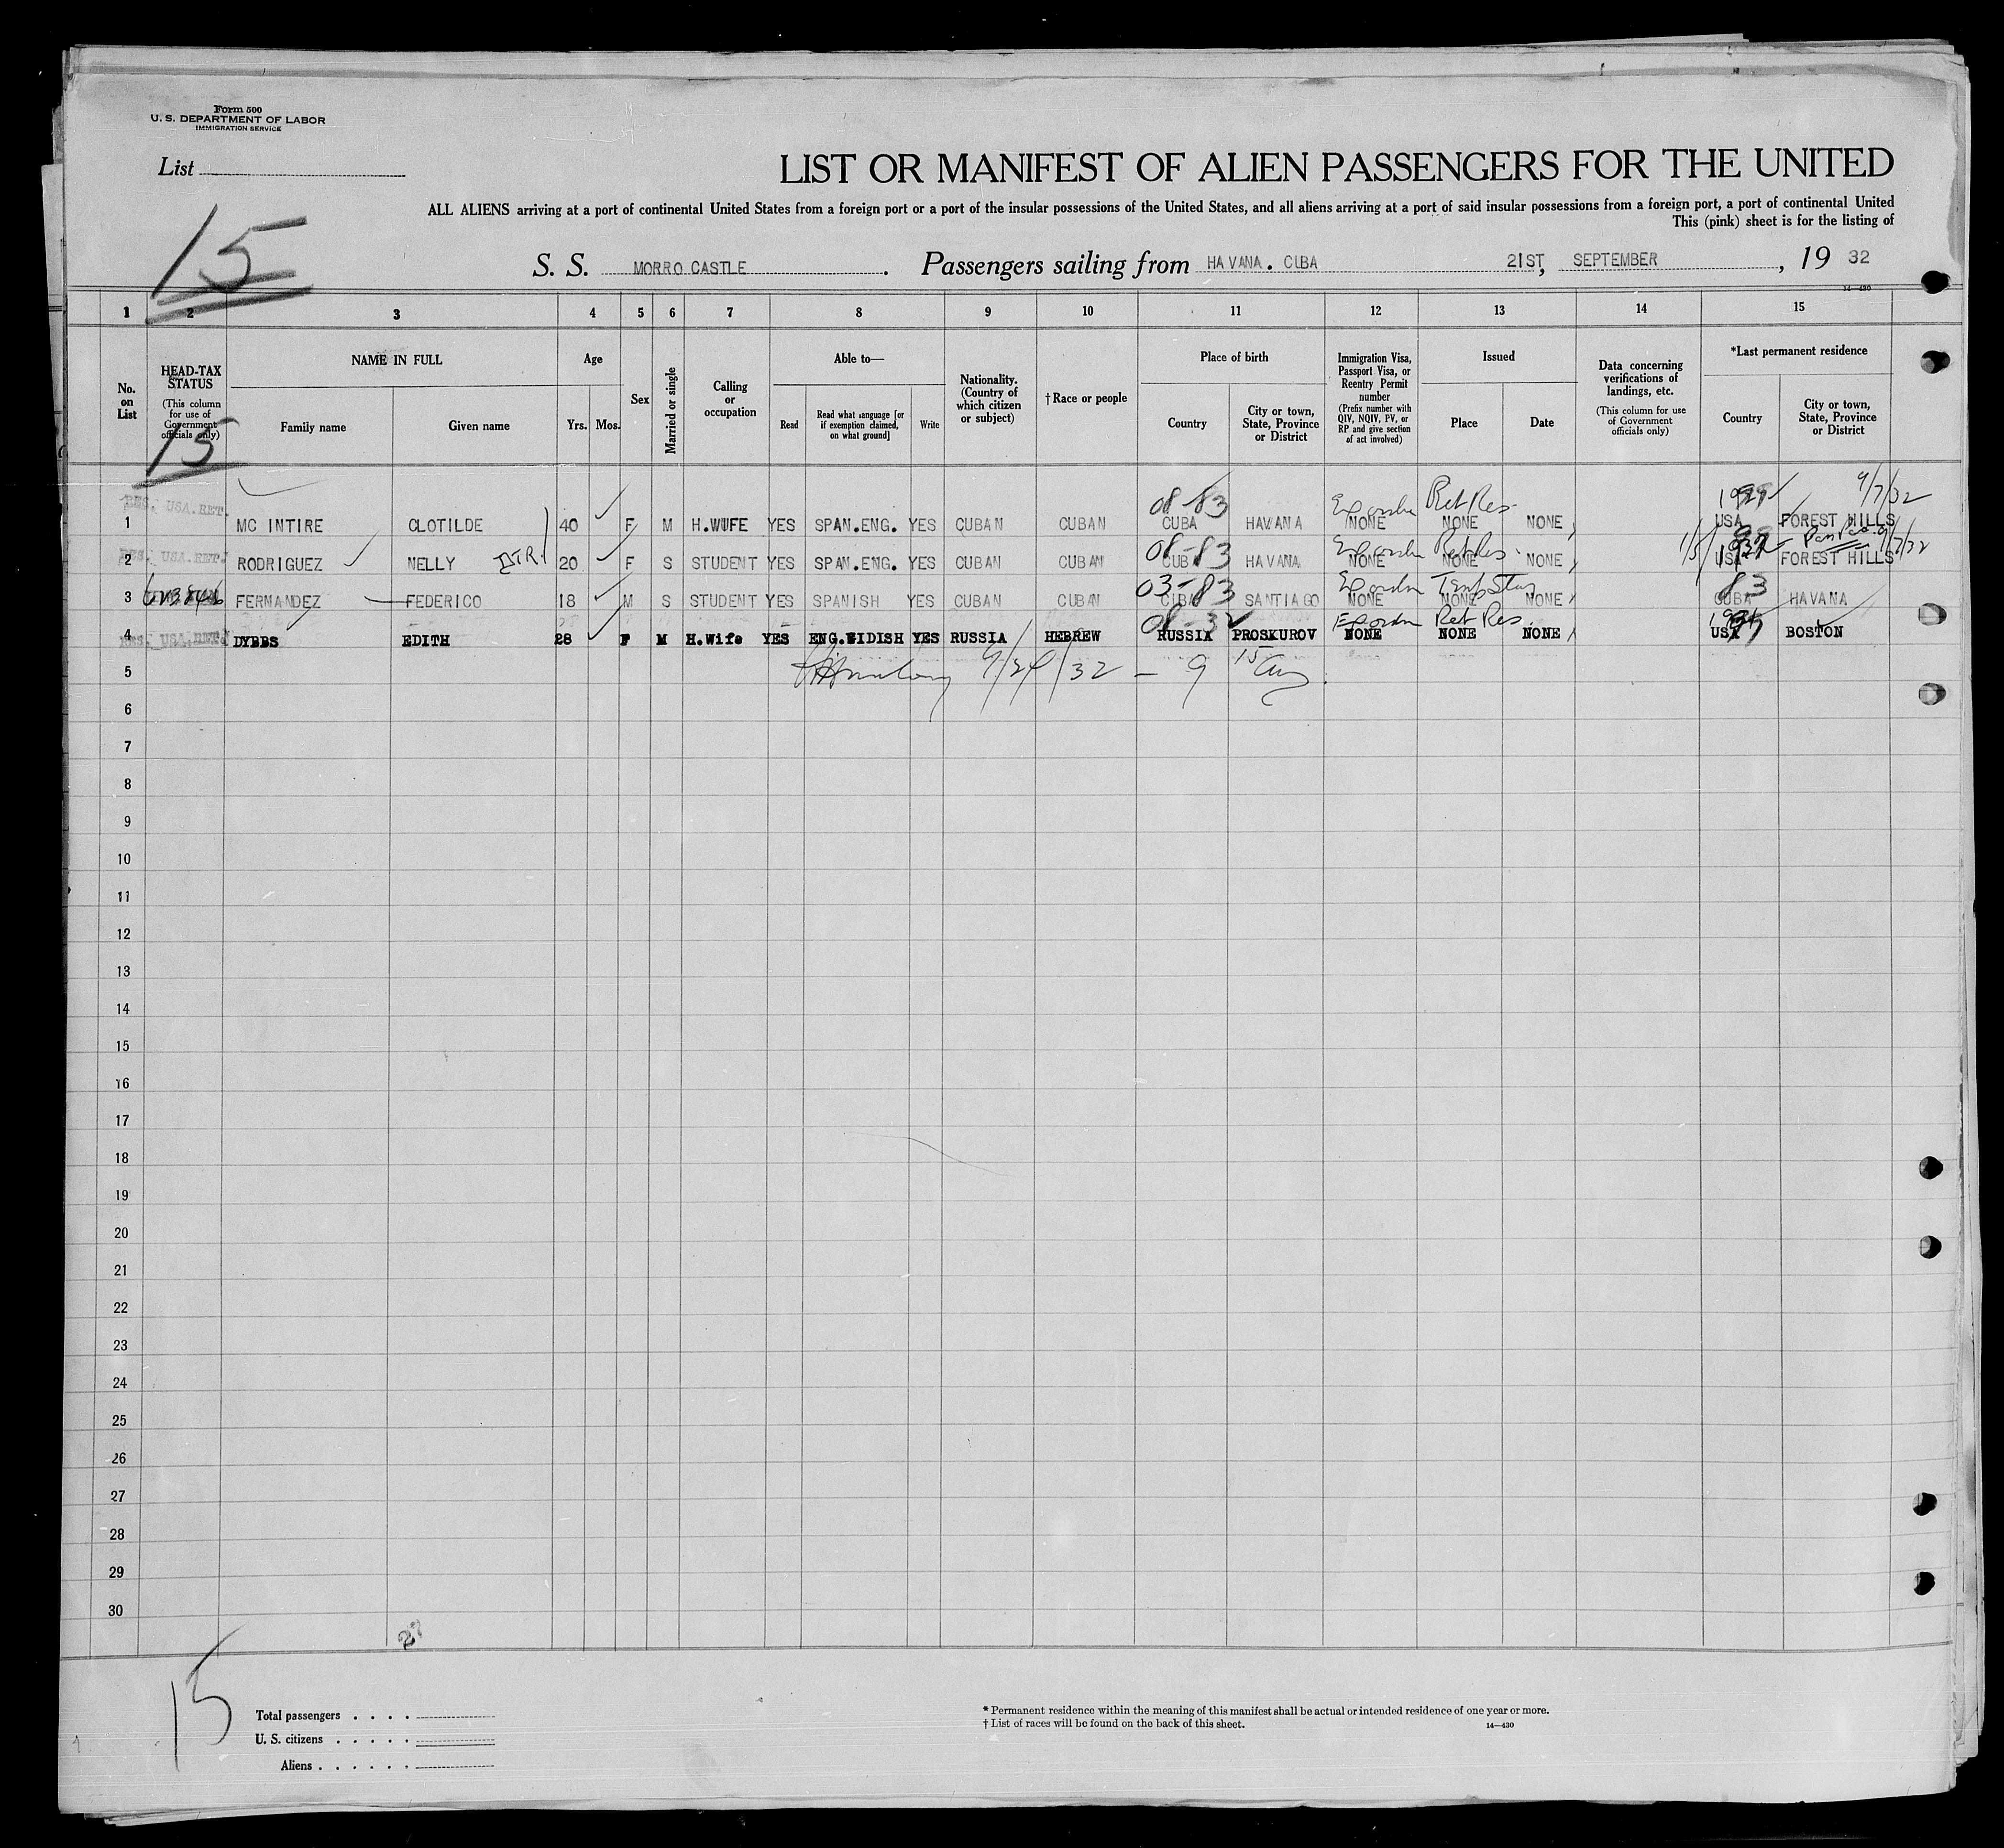 Form 500
U. S. DEPARTMENT OF LABOR
IMMIGRATION SERVICE
List
LIST OR MANIFEST OF ALIEN PASSENGERS FOR THE UNITED
ALL ALIENS arriving at a port of continental United States from a foreign port or a port of the insular possessions of the United States, and all aliens arriving at a port of said insular possessions from a foreign port, a port of continental United
This (pink) sheet is for the listing of
15
S. S. MORRO CASTLE. Passengers sailing from HAVANA. CUBA 21ST, SEPTEMBER, 19 32
14—430
1 2 3 4 5 6 7 8 9 10 11 12 13 14 15
No. on List
HEAD-TAX STATUS (This column for use of Government officials only)
NAME IN FULL Family name Given name
Age Yrs. Mos.
Sex
Married or single
Calling or occupation
Able to— Read Read what language [or if exemption claimed, on what ground] Write
Nationality. (Country of which citizen or subject)
† Race or people
Place of birth Country City or town, State, Province or District
Immigration Visa, Passport Visa, or Reentry Permit number (Prefix number with QIV, NQIV, PV, or RP and give section of act involved)
Issued Place Date
Data concerning verifications of landings, etc. (This column for use of Government officials only)
*Last permanent residence Country City or town, State, Province or District
15
08-83 Ret Res 9/7/32
1 RES. USA.RET. MC INTIRE CLOTILDE 40 F M H.WUFE YES SPAN.ENG. YES CUBAN CUBAN CUBA HAVANA NONE NONE NONE USA FOREST HILLS
08-83 Ret Res.
2 RES. USA.RET. RODRIGUEZ NELLY 20 F S STUDENT YES SPAN.ENG. YES CUBAN CUBAN CUBA HAVANA NONE NONE NONE USA FOREST HILLS
03-83 Temp Stay 83
3 FERNANDEZ FEDERICO 18 M S STUDENT YES SPANISH YES CUBAN CUBAN CUBA SANTIAGO NONE NONE NONE CUBA HAVANA
08-32 Ret Res.
4 RES. USA.RET. DYBBS EDITH 28 F M H.Wife YES ENG.WIDISH YES RUSSIA HEBREW RUSSIA PROSKUROV NONE NONE NONE USA BOSTON
5 9/24/32 — 9
6
7
8
9
10
11
12
13
14
15
16
17
18
19
20
21
22
23
24
25
26
27
28
29
30
27
15
Total passengers
U. S. citizens
Aliens
* Permanent residence within the meaning of this manifest shall be actual or intended residence of one year or more.
† List of races will be found on the back of this sheet. 14—430